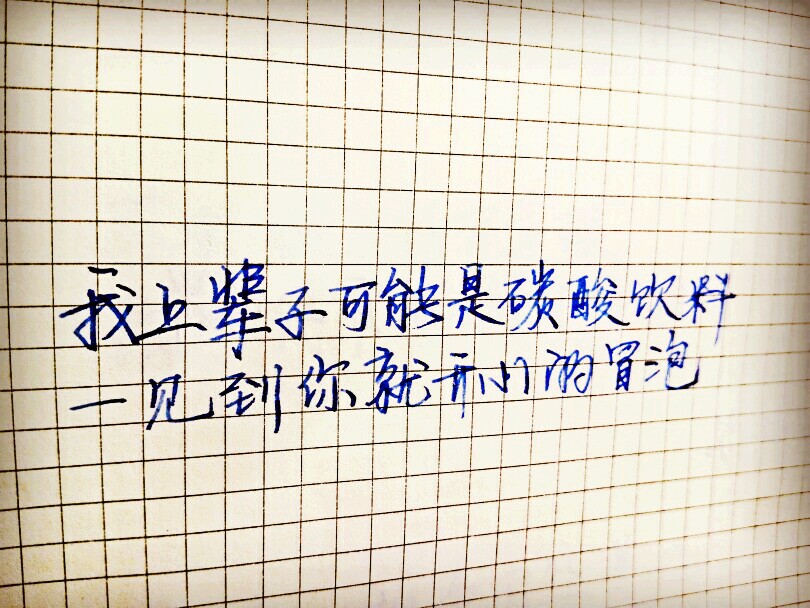 我上辈子可能是碳酸饮料
一见到你就开心的冒泡